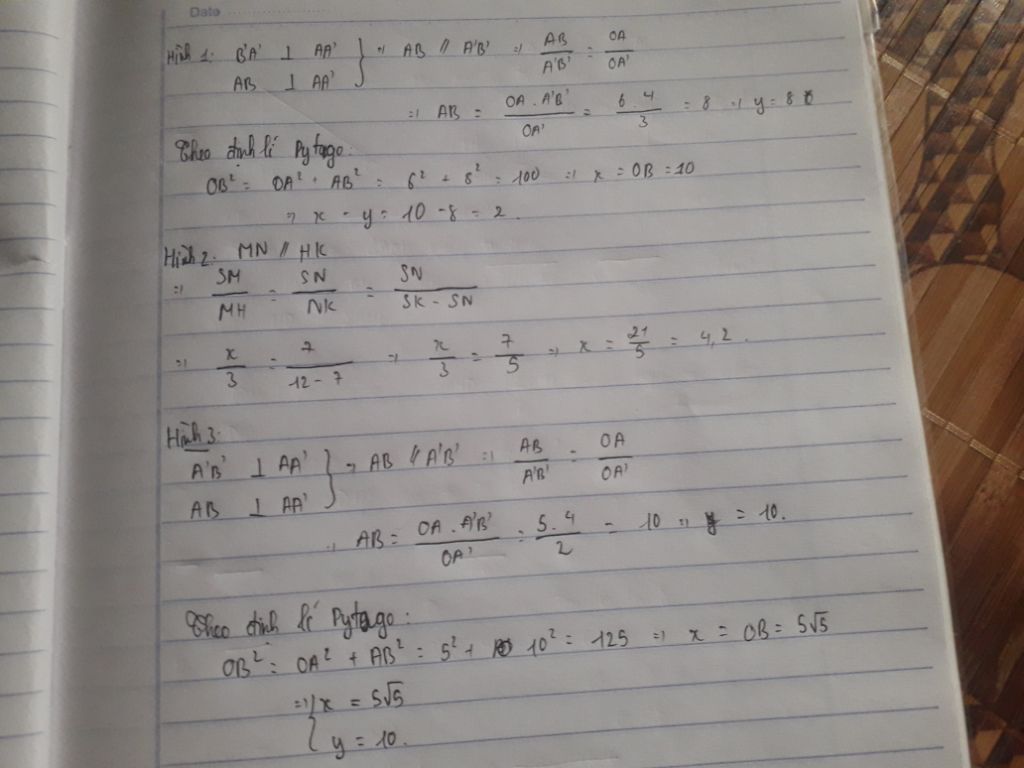 Date
Hình 1: B'A' ⊥ AA' } => AB // A'B' => AB/A'B' = OA/OA'
AB ⊥ AA'
=> AB = OA . A'B'/OA' = 6.4/3 = 8 => y = 8
Theo định lí Pytago:
OB² = OA² + AB² = 6² + 8² = 100 => x = OB = 10
=> x - y = 10 - 8 = 2.
Hình 2. MN // HK
=> SM/MH = SN/NK = SN/SK - SN
=> x/3 = 7/12-7 => x/3 = 7/5 => x = 21/5 = 4,2.
Hình 3:
A'B' ⊥ AA' } => AB // A'B' => AB/A'B' = OA/OA'
AB ⊥ AA'
=> AB = OA . A'B'/OA' = 5.4/2 = 10 => y = 10.
Theo định lí Pytago:
OB² = OA² + AB² = 5² + 10² = 125 => x = OB = 5√5
=> { x = 5√5
y = 10.